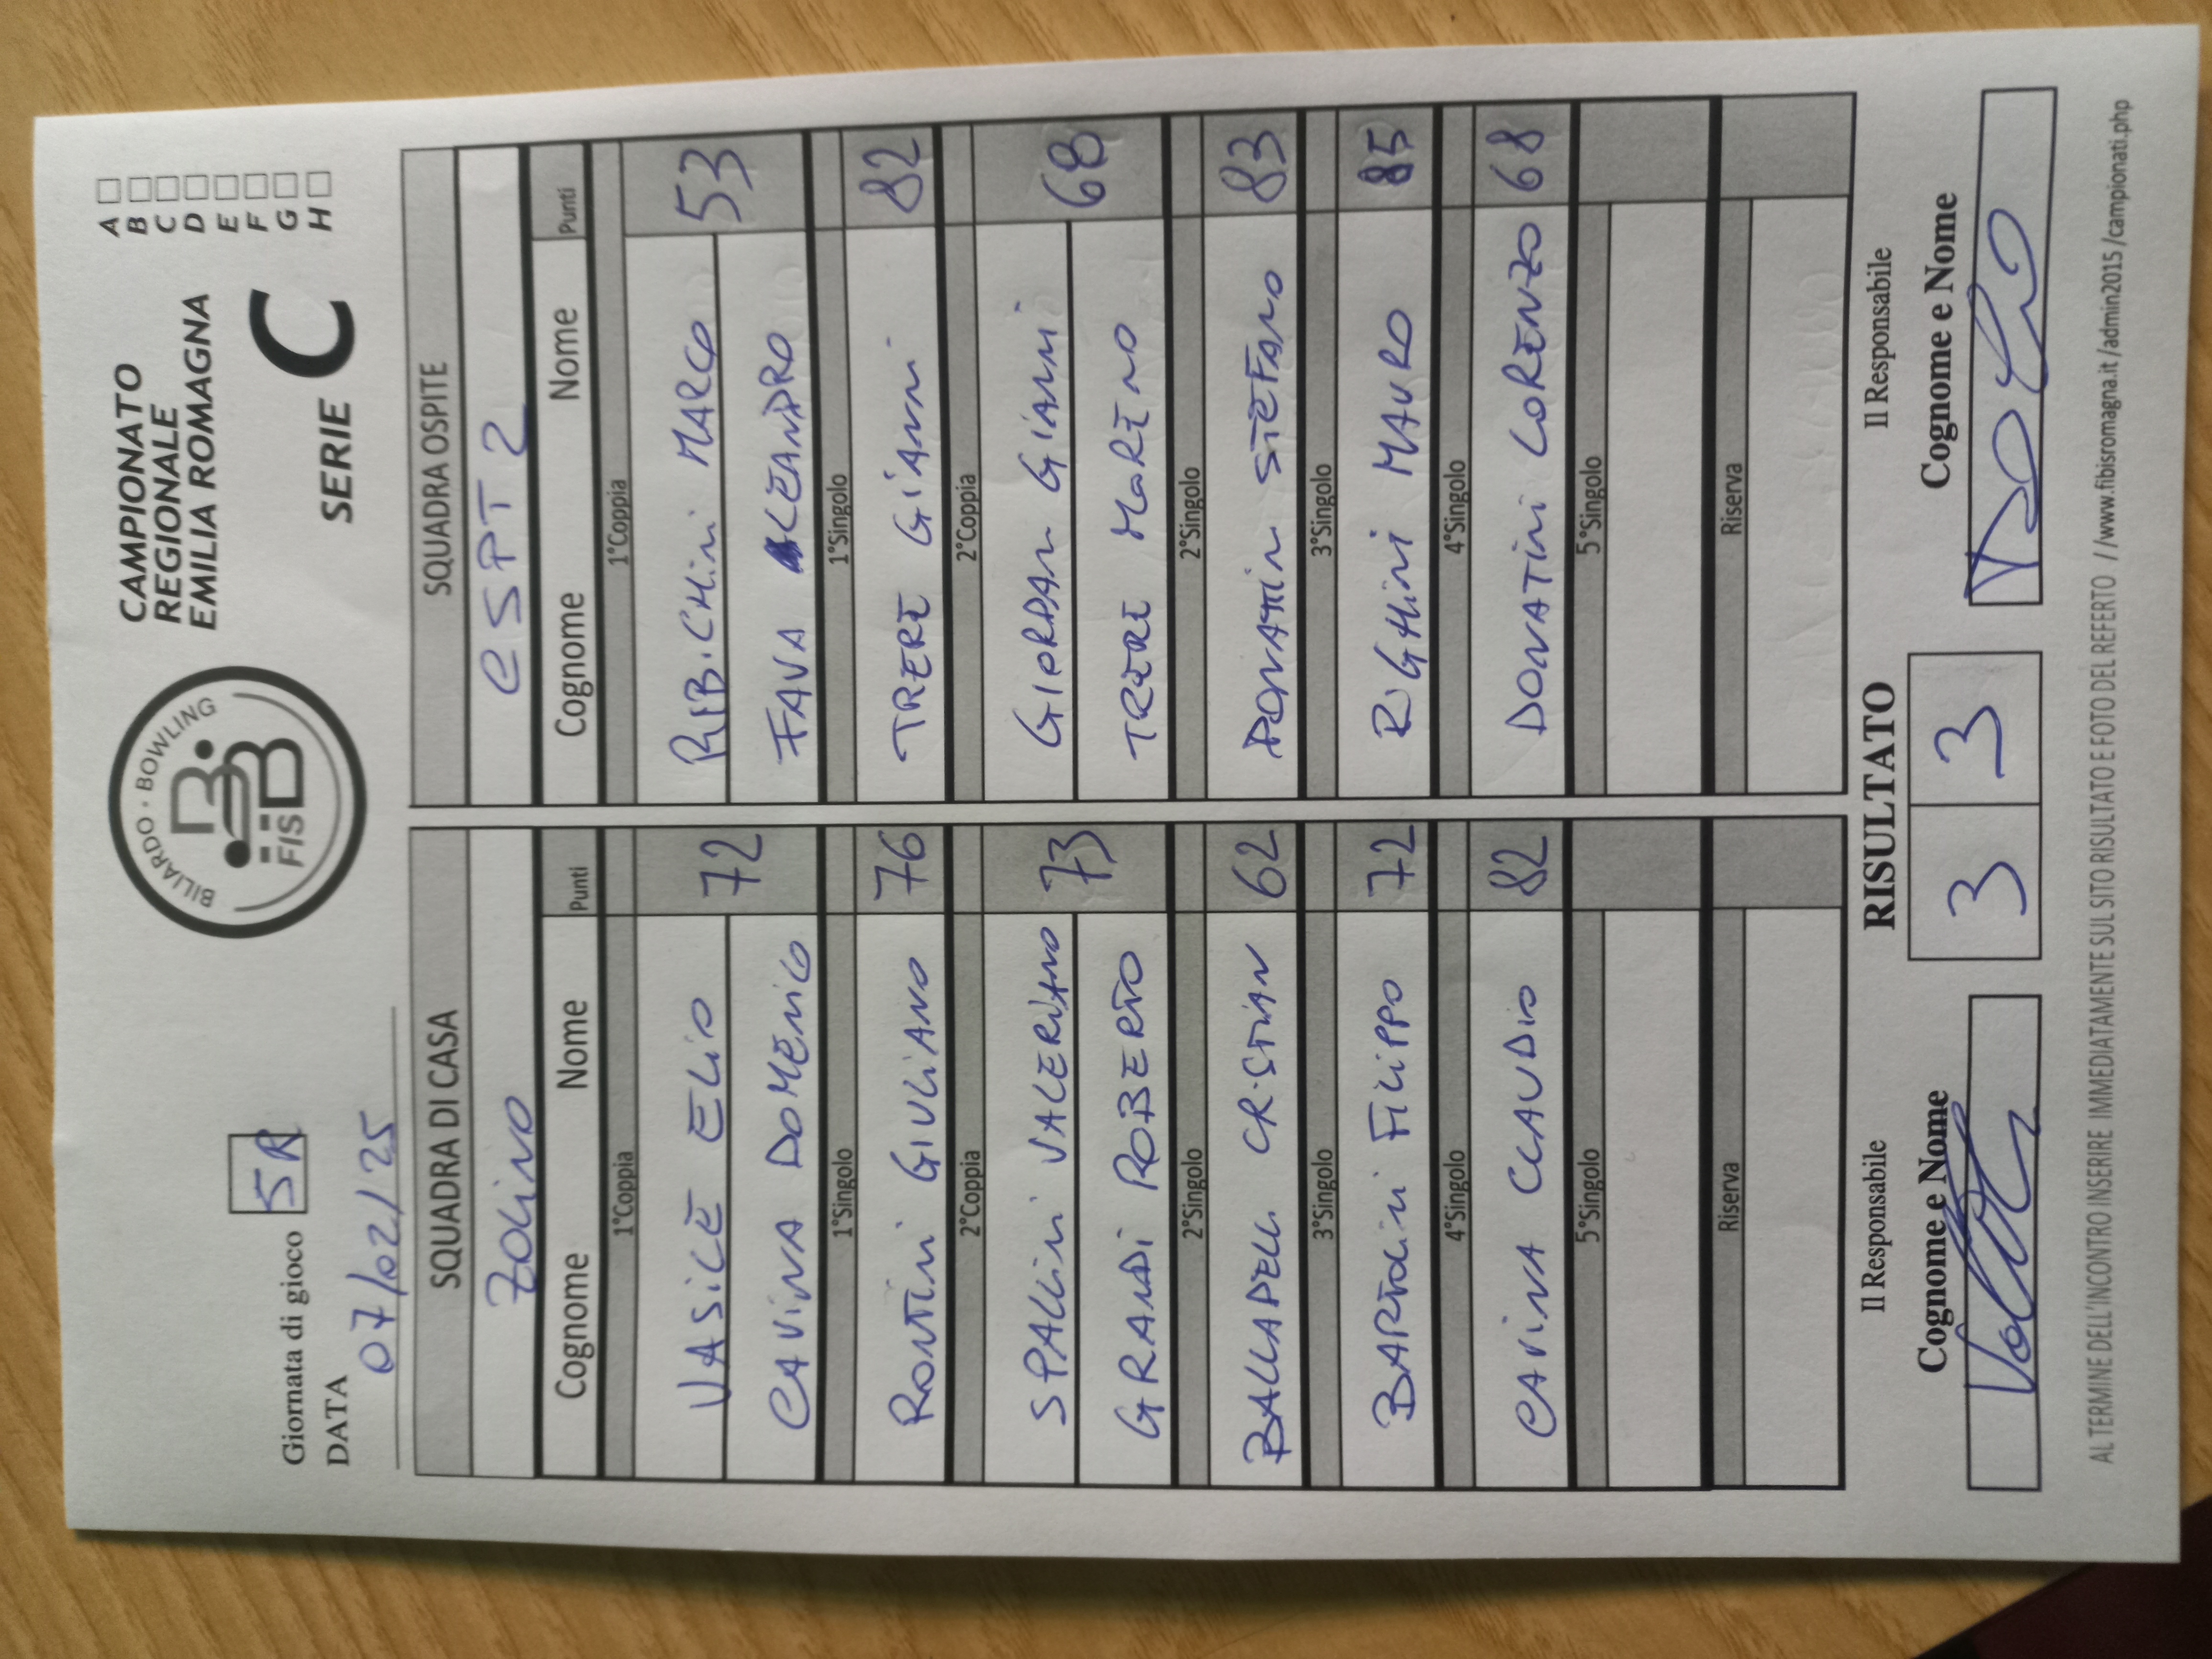 Giornata di gioco 5R
DATA
07/02/25
BILIARDO · BOWLING
FISBB
CAMPIONATO
REGIONALE
EMILIA ROMAGNA
SERIE C
A
B
C
D
E
F
G
H
SQUADRA DI CASA SQUADRA OSPITE
ZOLINO CSPT 2
Cognome Nome Punti Cognome Nome Punti
1°Coppia 1°Coppia
VASILE ELIO 72 RIBICHINI MARCO 53
CAVINA DOMENICO FAVA LEANDRO
1°Singolo 1°Singolo
RONTINI GIULIANO 76 TRERE GIANNI 82
2°Coppia 2°Coppia
SPALLINI VALERIANO 73 GIORDAN GIANNI 68
GRANDI ROBERTO TRERE MORENO
2°Singolo 2°Singolo
BALLADELLI CRISTIAN 62 DONATIN STEFANO 83
3°Singolo 3°Singolo
BARTOLINI FILIPPO 72 RIGHINI MAURO 85
4°Singolo 4°Singolo
CAVINA CLAUDIO 82 DONATINI LORENZO 68
5°Singolo 5°Singolo
Riserva Riserva
Il Responsabile RISULTATO Il Responsabile
Cognome e Nome 3 3 Cognome e Nome
AL TERMINE DELL'INCONTRO INSERIRE IMMEDIATAMENTE SUL SITO RISULTATO E FOTO DEL REFERTO //www.fibisromagna.it/admin2015/campionati.php